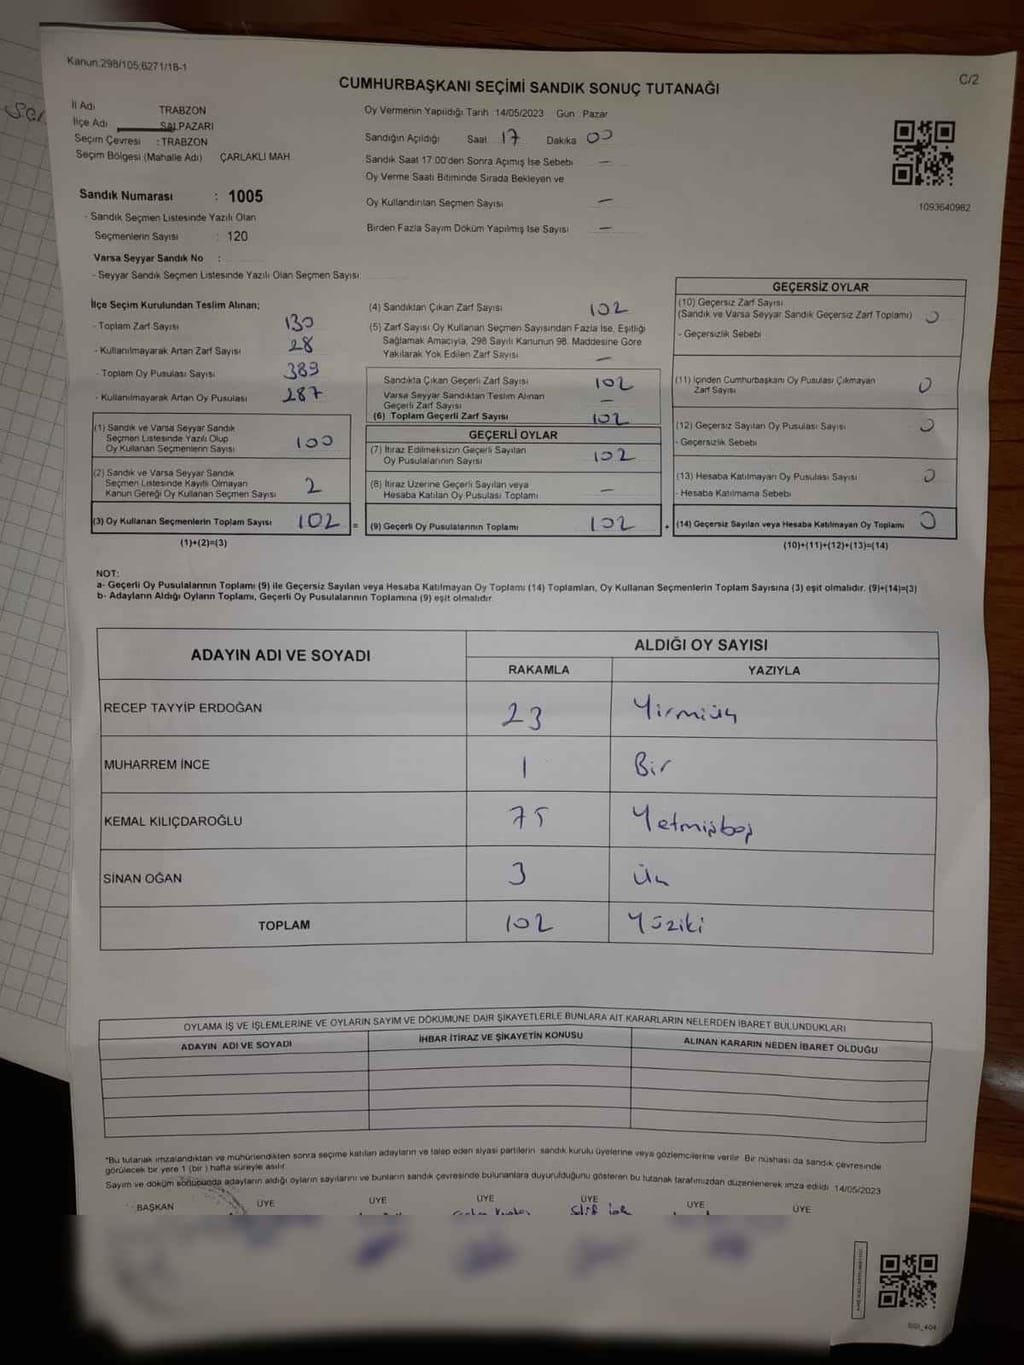 Kanun:298/105;6271/18-1
C/2
CUMHURBAŞKANI SEÇİMİ SANDIK SONUÇ TUTANAĞI
İl Adı TRABZON
İlçe Adı ŞALPAZARI
Seçim Çevresi : TRABZON
Seçim Bölgesi (Mahalle Adı) ÇARLAKLI MAH.
Oy Vermenin Yapıldığı Tarih :14/05/2023 Gün : Pazar
Sandığın Açıldığı Saat 17 Dakika 00
Sandık Saat 17:00'den Sonra Açılmış İse Sebebi —
Oy Verme Saati Bitiminde Sırada Bekleyen ve
Oy Kullandırılan Seçmen Sayısı —
Birden Fazla Sayım Döküm Yapılmış İse Sayısı —
1093640982
Sandık Numarası : 1005
- Sandık Seçmen Listesinde Yazılı Olan
Seçmenlerin Sayısı : 120
Varsa Seyyar Sandık No :
- Seyyar Sandık Seçmen Listesinde Yazılı Olan Seçmen Sayısı:
İlçe Seçim Kurulundan Teslim Alınan;
- Toplam Zarf Sayısı 130
- Kullanılmayarak Artan Zarf Sayısı 28
- Toplam Oy Pusulası Sayısı 389
- Kullanılmayarak Artan Oy Pusulası 287
(1) Sandık ve Varsa Seyyar Sandık
Seçmen Listesinde Yazılı Olup
Oy Kullanan Seçmenlerin Sayısı 100
(2) Sandık ve Varsa Seyyar Sandık
Seçmen Listesinde Kayıtlı Olmayan
Kanun Gereği Oy Kullanan Seçmen Sayısı 2
(3) Oy Kullanan Seçmenlerin Toplam Sayısı 102 =
(1)+(2)=(3)
(4) Sandıktan Çıkan Zarf Sayısı 102
(5) Zarf Sayısı Oy Kullanan Seçmen Sayısından Fazla İse, Eşitliği
Sağlamak Amacıyla, 298 Sayılı Kanunun 98. Maddesine Göre
Yakılarak Yok Edilen Zarf Sayısı —
Sandıkta Çıkan Geçerli Zarf Sayısı 102
Varsa Seyyar Sandıktan Teslim Alınan
Geçerli Zarf Sayısı —
(6) Toplam Geçerli Zarf Sayısı 102
GEÇERLİ OYLAR
(7) İtiraz Edilmeksizin Geçerli Sayılan
Oy Pusulalarının Sayısı 102
(8) İtiraz Üzerine Geçerli Sayılan veya
Hesaba Katılan Oy Pusulası Toplamı —
(9) Geçerli Oy Pusulalarının Toplamı 102 +
GEÇERSİZ OYLAR
(10) Geçersiz Zarf Sayısı
(Sandık ve Varsa Seyyar Sandık Geçersiz Zarf Toplamı) 0
- Geçersizlik Sebebi
(11) İçinden Cumhurbaşkanı Oy Pusulası Çıkmayan
Zarf Sayısı 0
(12) Geçersiz Sayılan Oy Pusulası Sayısı 0
- Geçersizlik Sebebi
(13) Hesaba Katılmayan Oy Pusulası Sayısı 0
- Hesaba Katılmama Sebebi
(14) Geçersiz Sayılan veya Hesaba Katılmayan Oy Toplamı 0
(10)+(11)+(12)+(13)=(14)
NOT:
a- Geçerli Oy Pusulalarının Toplamı (9) ile Geçersiz Sayılan veya Hesaba Katılmayan Oy Toplamı (14) Toplamları, Oy Kullanan Seçmenlerin Toplam Sayısına (3) eşit olmalıdır. (9)+(14)=(3)
b- Adayların Aldığı Oyların Toplamı, Geçerli Oy Pusulalarının Toplamına (9) eşit olmalıdır.
ADAYIN ADI VE SOYADI
ALDIĞI OY SAYISI
RAKAMLA YAZIYLA
RECEP TAYYİP ERDOĞAN 23 Yirmiüç
MUHARREM İNCE 1 Bir
KEMAL KILIÇDAROĞLU 75 Yetmişbeş
SİNAN OĞAN 3 Üç
TOPLAM 102 Yüziki
OYLAMA İŞ VE İŞLEMLERİNE VE OYLARIN SAYIM VE DÖKÜMÜNE DAİR ŞİKAYETLERLE BUNLARA AİT KARARLARIN NELERDEN İBARET BULUNDUKLARI
ADAYIN ADI VE SOYADI İHBAR İTİRAZ VE ŞİKAYETİN KONUSU ALINAN KARARIN NEDEN İBARET OLDUĞU
*Bu tutanak imzalandıktan ve mühürlendikten sonra seçime katılan adayların ve talep eden siyasi partilerin sandık kurulu üyelerine veya gözlemcilerine verilir. Bir nüshası da sandık çevresinde
görülecek bir yere 1 (bir) hafta süreyle asılır.
Sayım ve döküm sonucunda adayların aldığı oyların sayılarını ve bunların sandık çevresinde bulunanlara duyurulduğunu gösteren bu tutanak tarafımızdan düzenlenerek imza edildi. 14/05/2023
BAŞKAN ÜYE ÜYE ÜYE ÜYE ÜYE ÜYE